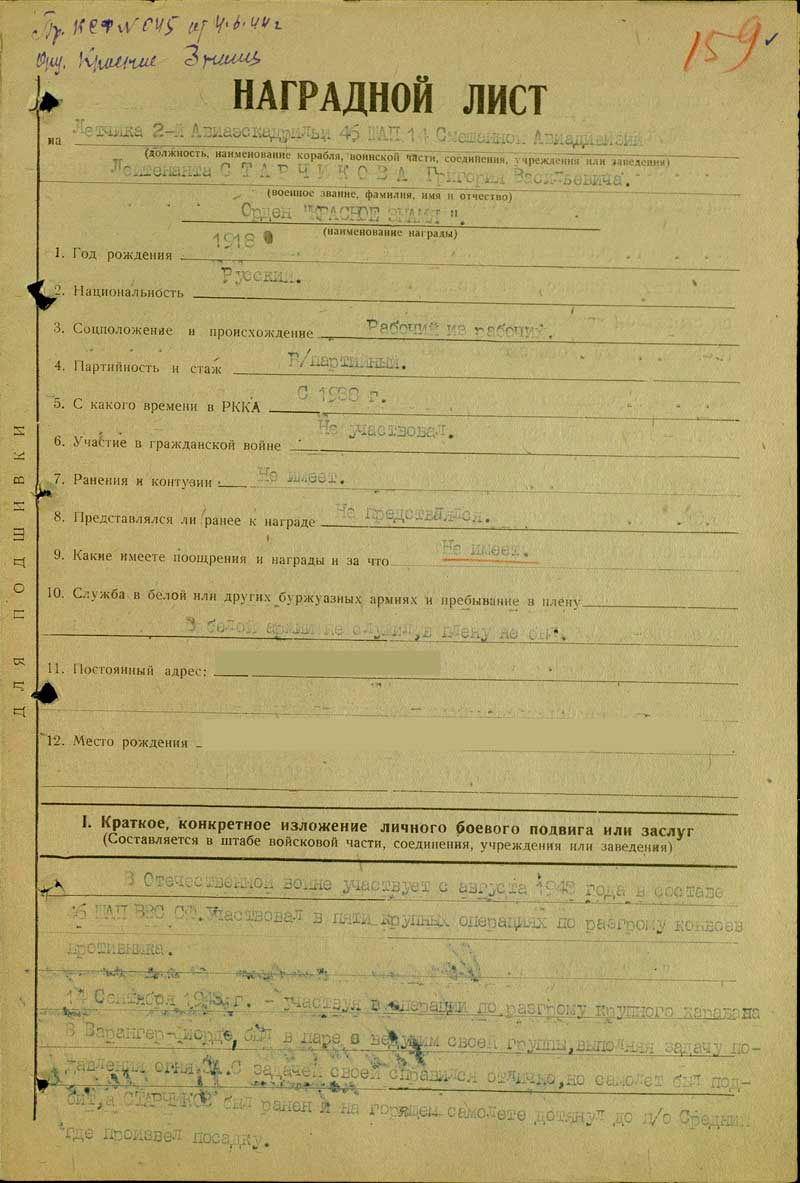 Пр. КСФ № 045 от 4.6.44 г.
Орд. Красное Знамя
159
НАГРАДНОЙ ЛИСТ
на Летчика 2-й Авиаэскадрильи 46 ШАП 14 Смешанной Авиадивизии
(должность, наименование корабля, воинской части, соединения, учреждения или заведения)
Лейтенанта СТАРЧИКОВА Григория Васильевича.
(военное звание, фамилия, имя и отчество)
Орден "КРАСНОЕ ЗНАМЯ".
(наименование награды)
1. Год рождения 1918
2. Национальность Русский.
3. Соцположение и происхождение Рабочий из рабочих.
4. Партийность и стаж Б/партийный.
5. С какого времени в РККА С 1938 г.
6. Участие в гражданской войне Не участвовал.
7. Ранения и контузии Не имеет.
8. Представлялся ли ранее к награде Не представлялся.
9. Какие имеете поощрения и награды и за что Не имеет.
10. Служба в белой или других буржуазных армиях и пребывание в плену
В белой армии не служил, в плену не был.
11. Постоянный адрес:
12. Место рождения
I. Краткое, конкретное изложение личного боевого подвига или заслуг
(Составляется в штабе войсковой части, соединения, учреждения или заведения)
В Отечественной войне участвует с августа 1943 года в составе
46 ШАП ВВС СФ. Участвовал в пяти крупных операциях по разгрому конвоев
противника.
14 Сентября 1943 г. - участвуя в операции по разгрому крупного каравана
в Варангер-фиорде, был в паре с ведущим своей группы, выполняя задачу по-
давления огня ЗА. С задачей своей справился отлично, но самолет был под-
бит, а СТАРЧИКОВ был ранен и на горящем самолете дотянул до п/о Средний
где произвел посадку.
ДЛЯ ПОДШИВКИ